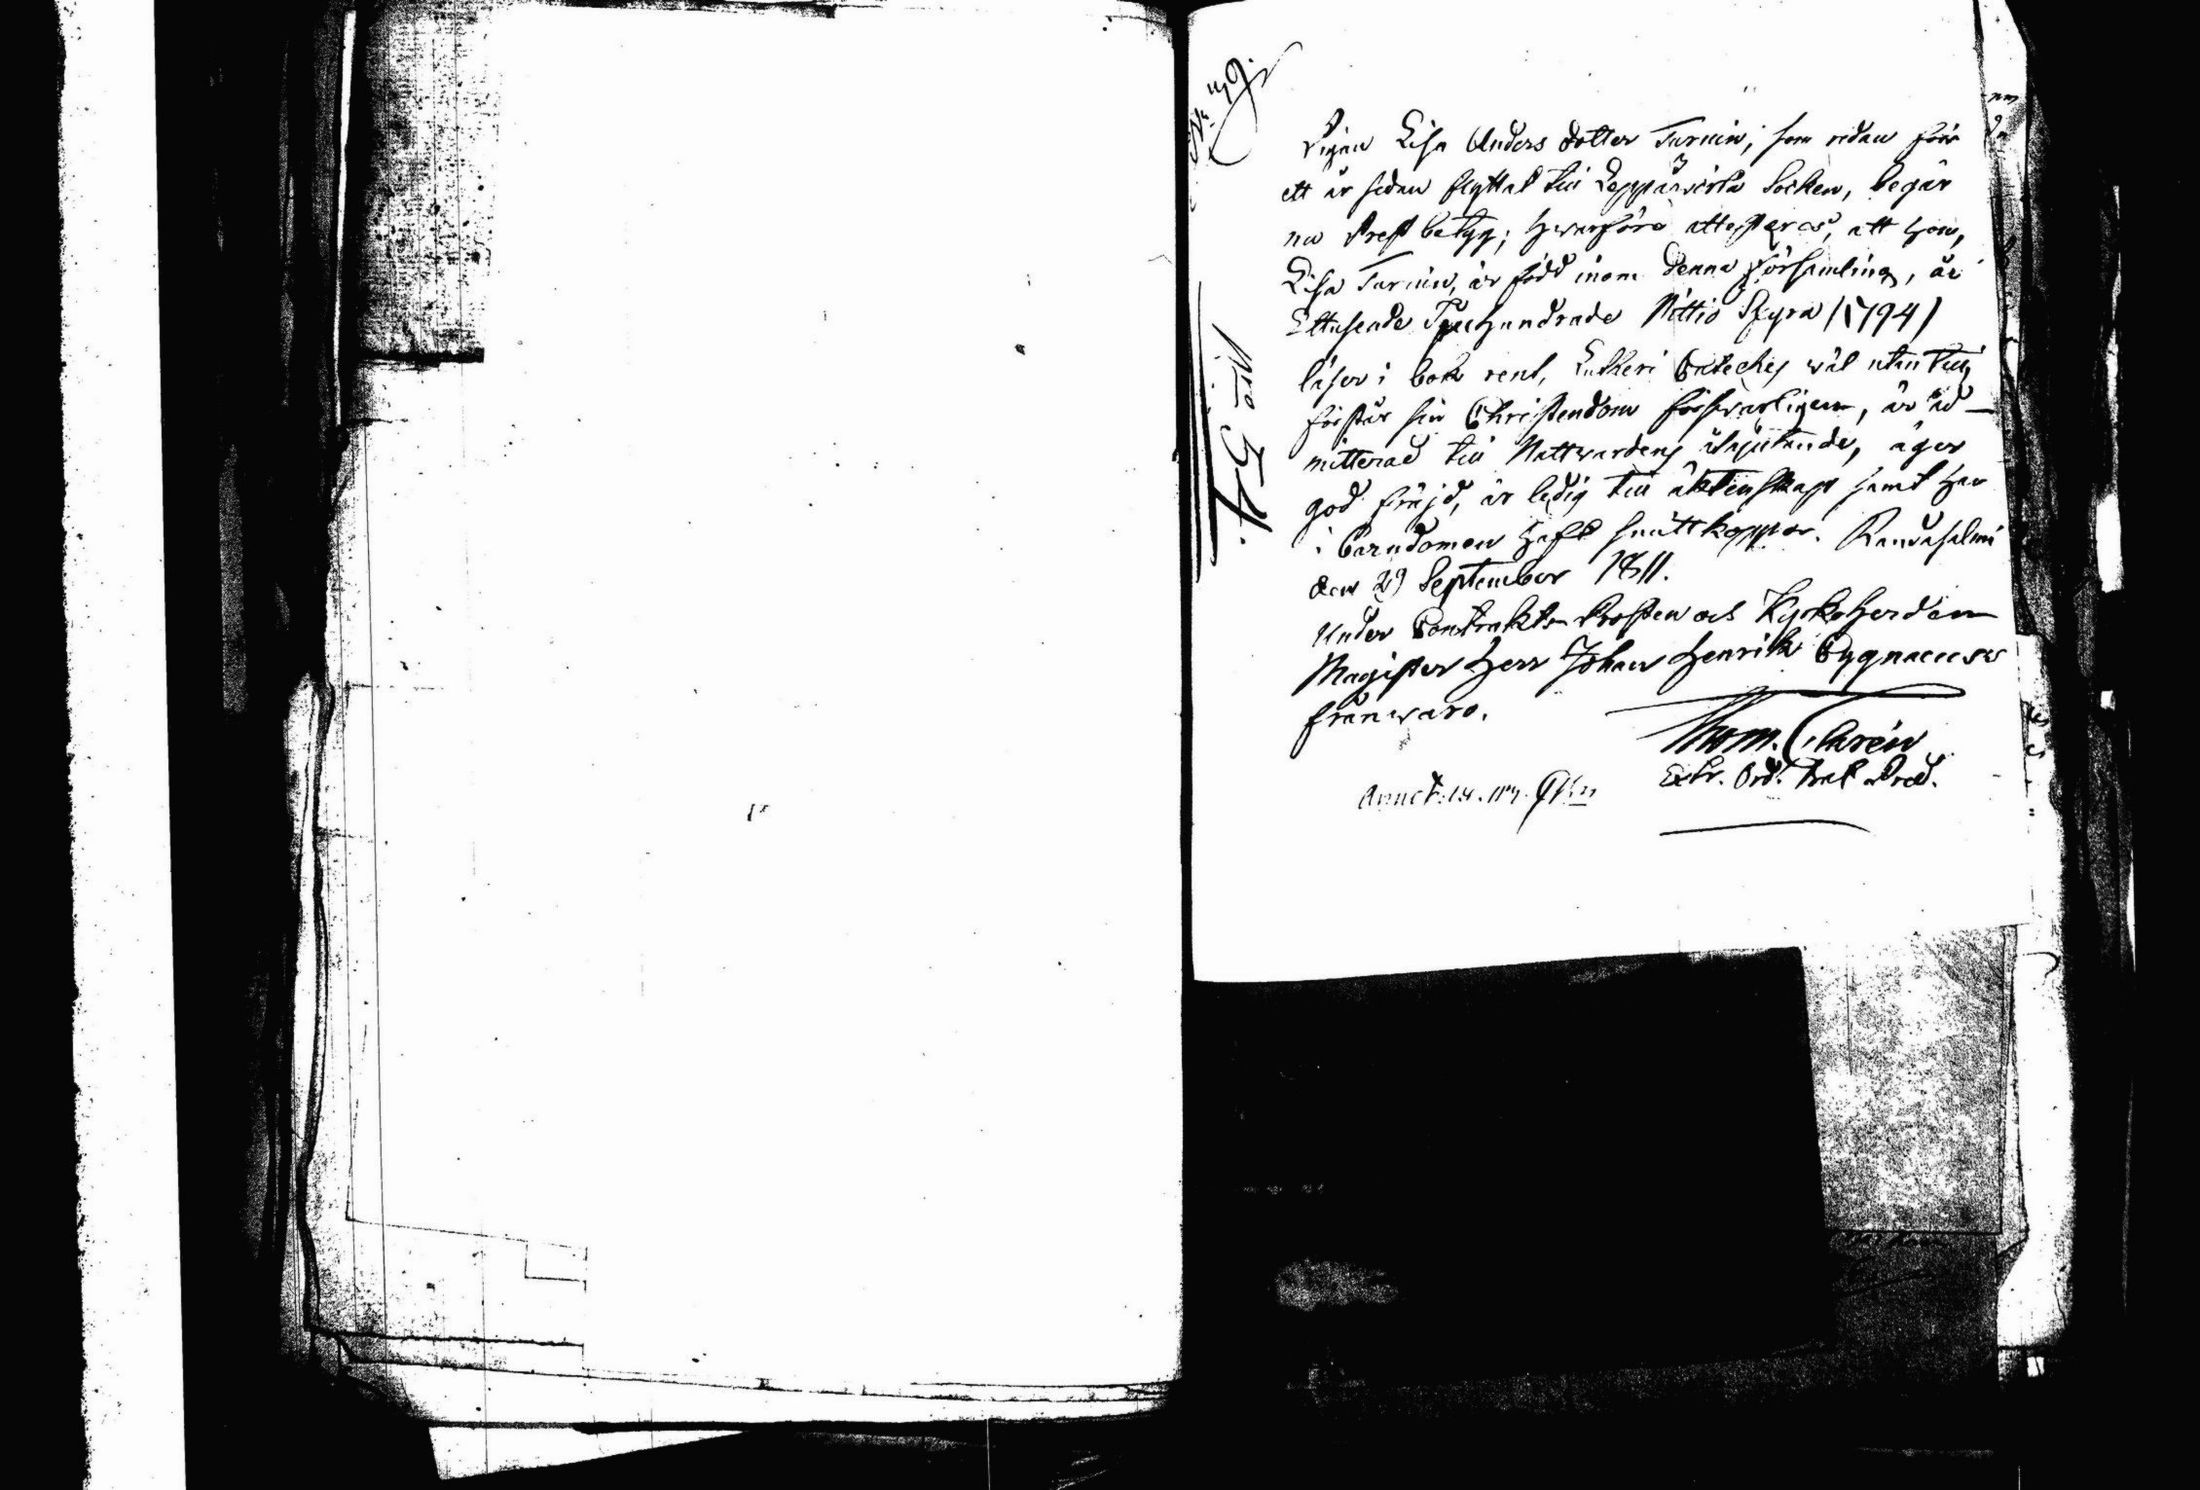 Pigan Lisa Anders dotter Turnin, som redan för
ett år sedan flyttat till Leppävirta Socken, begär
nu Prestbetyg; hvarföre attesteras, att hon,
Lisa Turnin, är född inom denna församling, år
Ettusende Sjuhundrade Nittio Fyra /1794/
läser i bok rent, Lutheri Cateches wäl utantill,
förstår sin Christendom försvarligen, är ad-
mitterad till Nattwardens åtnjutande, äger
god frejd, är ledig till äktenskap samt har
i barndomen haft smittkoppor. Randasalmi
den 29 September 1811.
Under Contrakts Prosten och Kyrkoherden
Magister Herr Johan Henrik Cygnaeus
frånwaro.
Thom. Clarén
Extr. Ord. Prad.
Annot.
No 54.